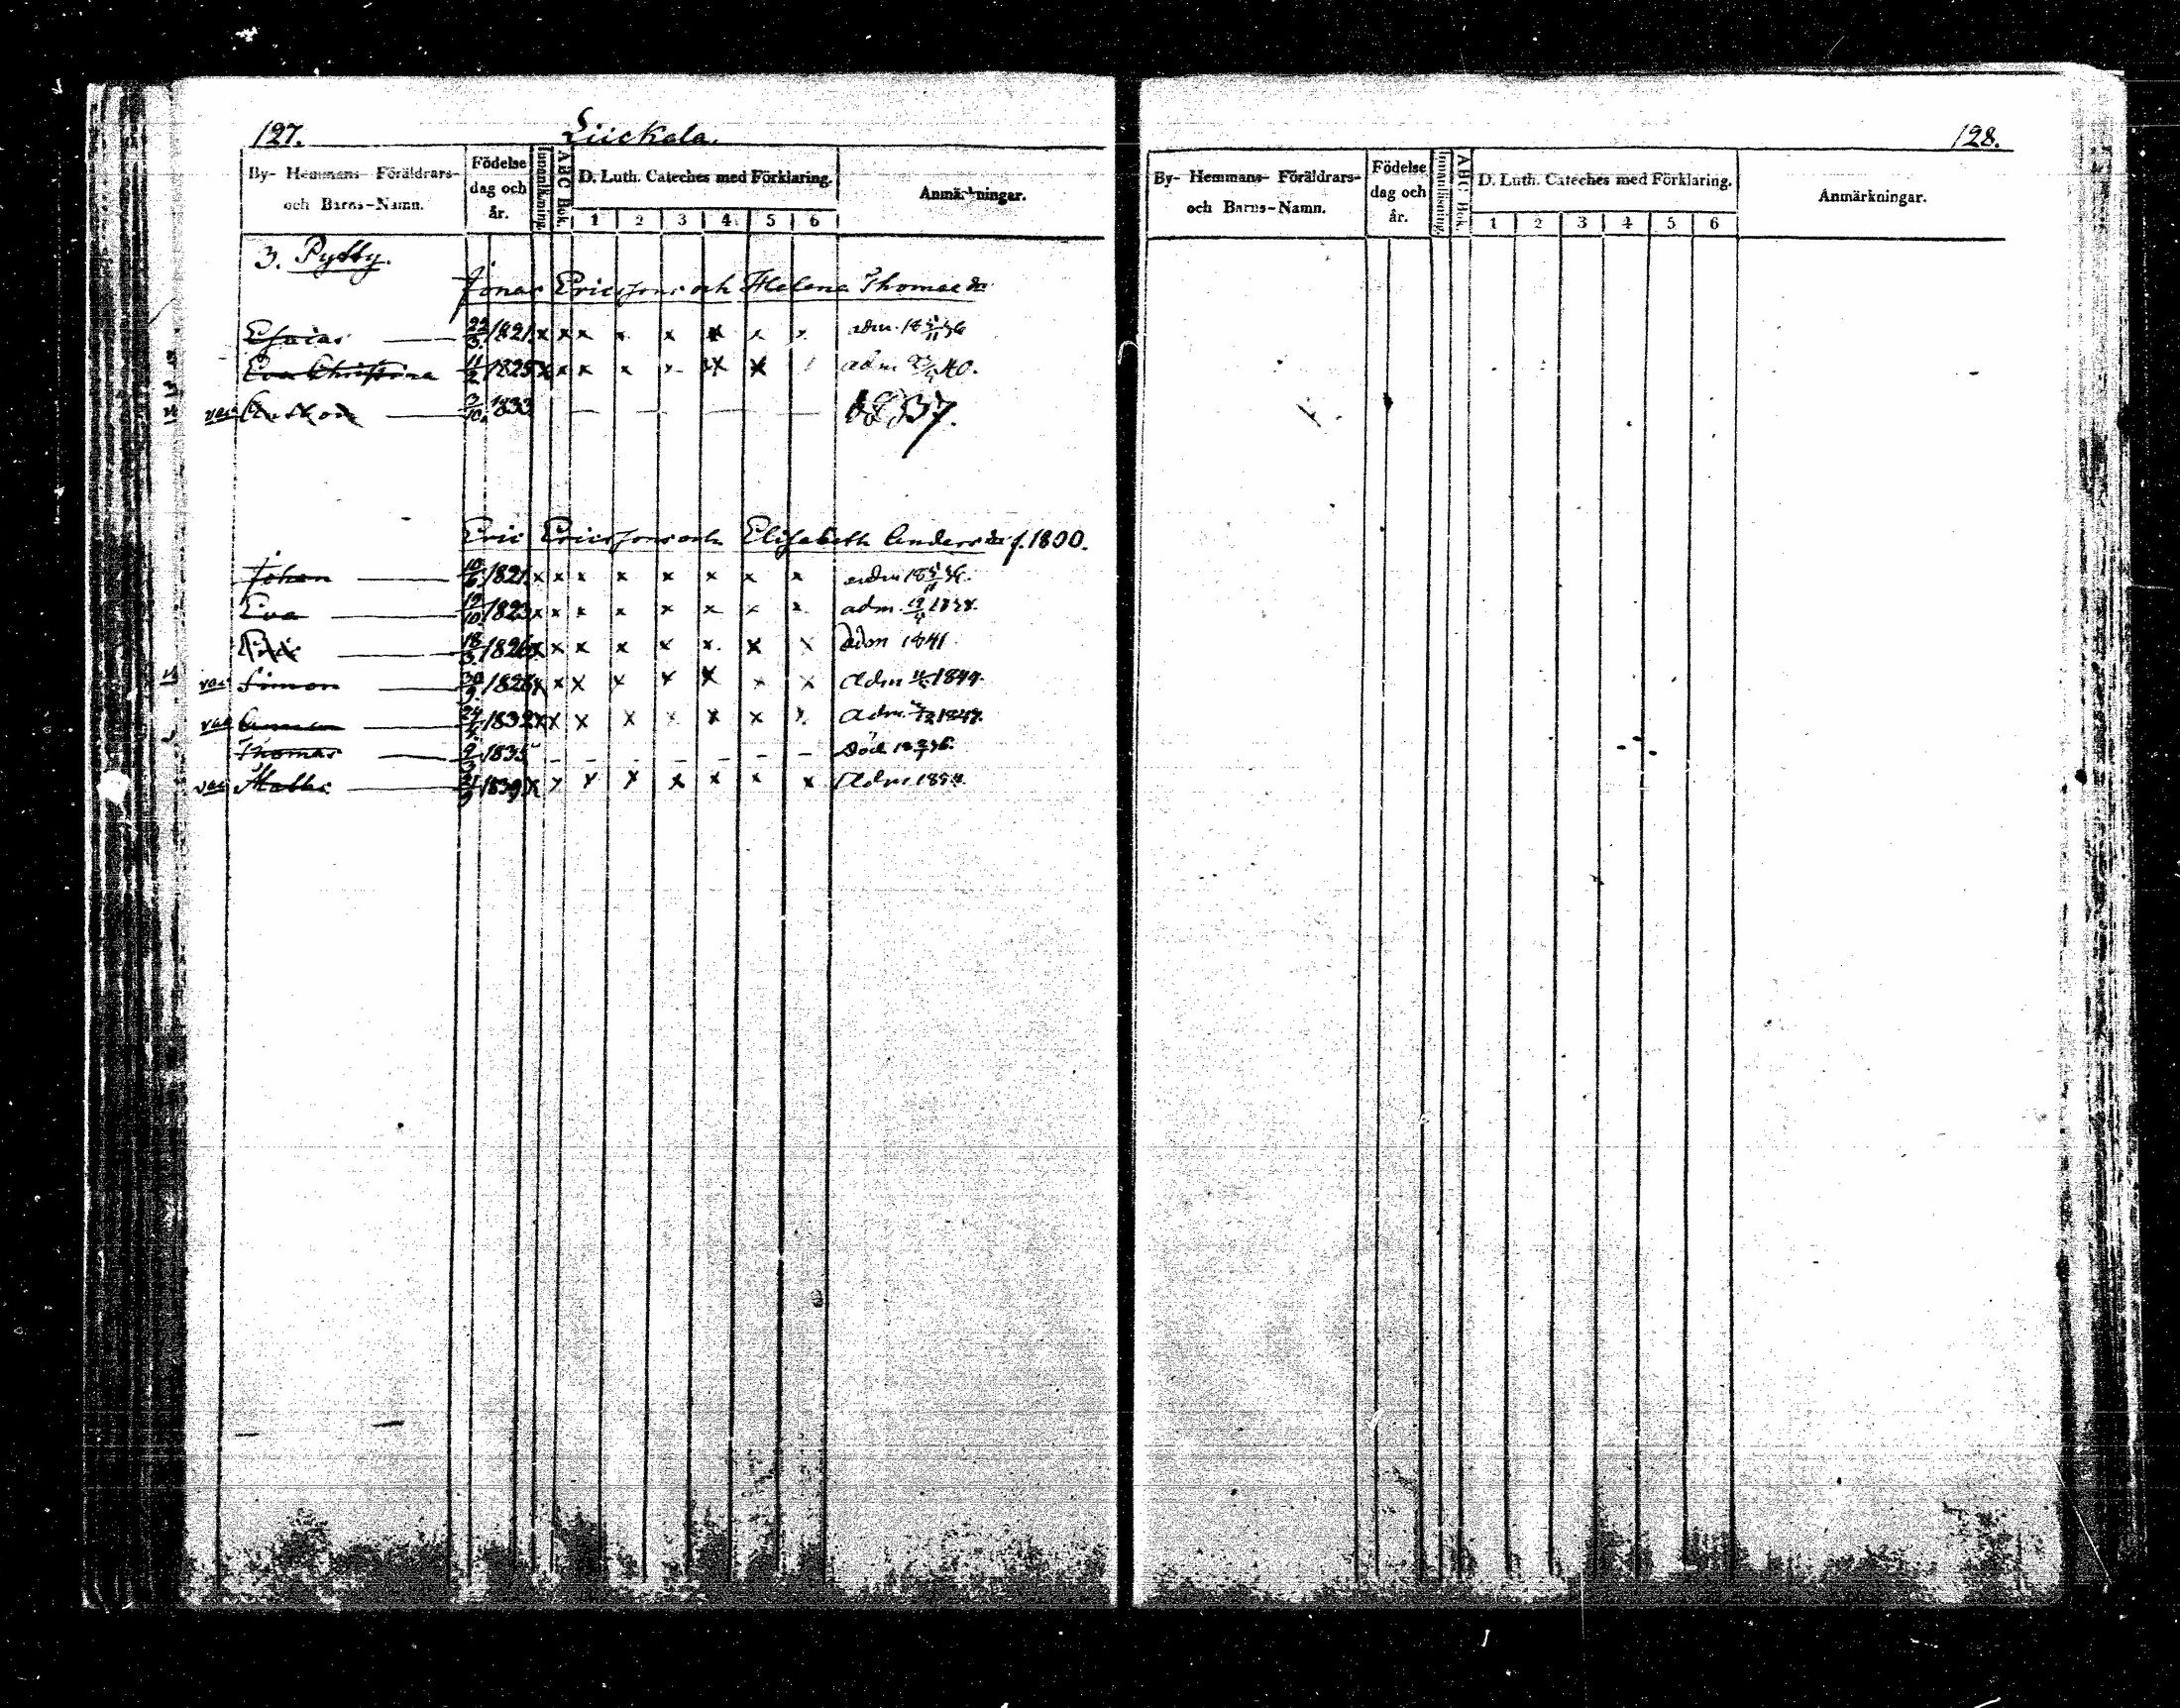 127. Liickala.
By- Hemmans- Föräldrars- och Barns-Namn.
Födelse dag och år.
Innanläsning.
ABC Bok.
D. Luth. Cateches med Förklaring.
1 2 3 4 5 6
Anmärkningar.
3. Pytty.
Jonas Ericssons och Helena Thomae dr
Esaias 22/3 1821 x x x x x x x x adm. 18 5/11 36
Eva Christina 11/2 1825 x x x x x x x adm 40.
vac 3/10 1833 — — — — — 1837.
Eric Ericssons och Elisabeth Anders dr f. 1800.
Johan 10/6 1821 x x x x x x x x adm 18 36.
Eva 19/10 1823 x x x x x x x x adm. 1838.
18/3 1826 x x x x x x x x adm 1841
vac Simon 30/9 1828 x x x x x x x x Adm 1849.
vac 24/4 1832 x x x x x x x x Adm.
Thomas 2/3 1835 – – – – – – – Död
vac Matts 21/9 1839 x x x x x x x x Adm 1854.
128.
By- Hemmans- Föräldrars- och Barns-Namn.
Födelse dag och år.
Innanläsning.
ABC Bok.
D. Luth. Cateches med Förklaring.
1 2 3 4 5 6
Anmärkningar.